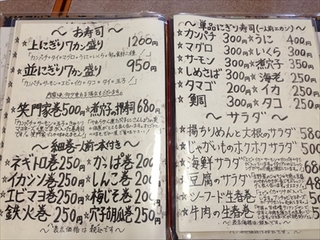 ～お寿司～
☆上にぎり7カン盛り 1260円
☆並にぎり7カン盛り 950円
☆笑門家巻500円☆煮穴子押寿司680円
～細巻～
☆ネギトロ巻250円☆かっぱ巻200円
☆イカシソ巻250円☆しんこ巻200円
☆エビマヨ巻250円☆梅しそ巻200円
☆鉄火巻250円☆穴子胡瓜巻250円
～単品にぎり寿司～
☆カンパチ300円☆うに400円
☆マグロ300円☆いくら300円
☆サーモン300円☆煮穴子350円
☆しめさば300円☆海老250円
☆タマゴ200円☆イカ250円
☆鯛300円☆タコ250円
～サラダ～
☆揚ちりめんと大根のサラダ580円
☆じゃがいものホクホクサラダ580円
☆海鮮サラダ680円
☆豆腐のサラダ580円
☆シーフード生春巻580円
☆牛肉の生春巻580円